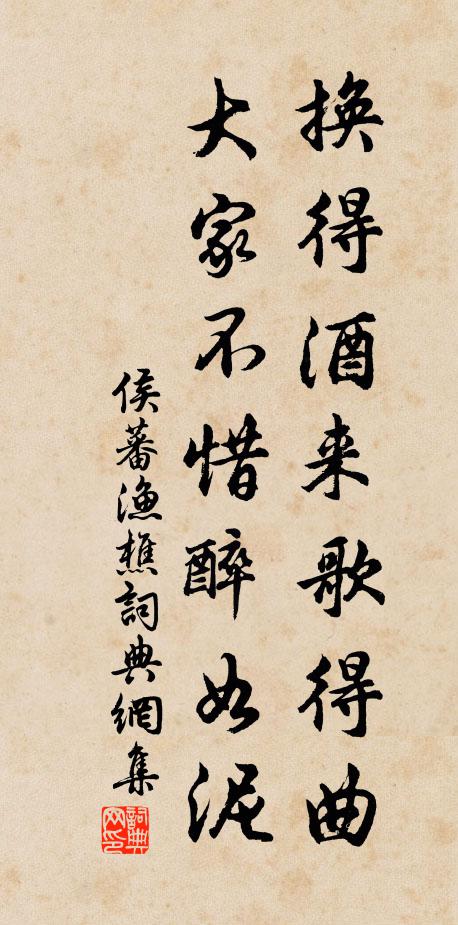 换得酒来歌得曲
大家不惜醉如泥
侯蕃漁樵詞典網集
詞典网印